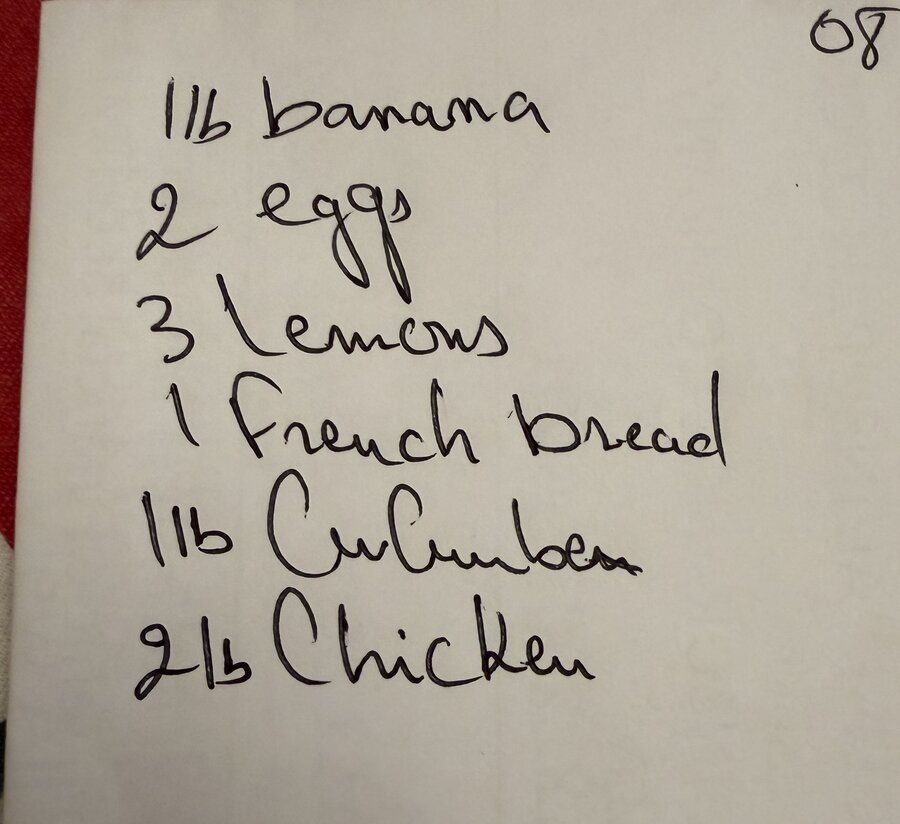 08
1lb banana
2 eggs
3 Lemons
1 French bread
1lb CuCumber
2lb Chicken